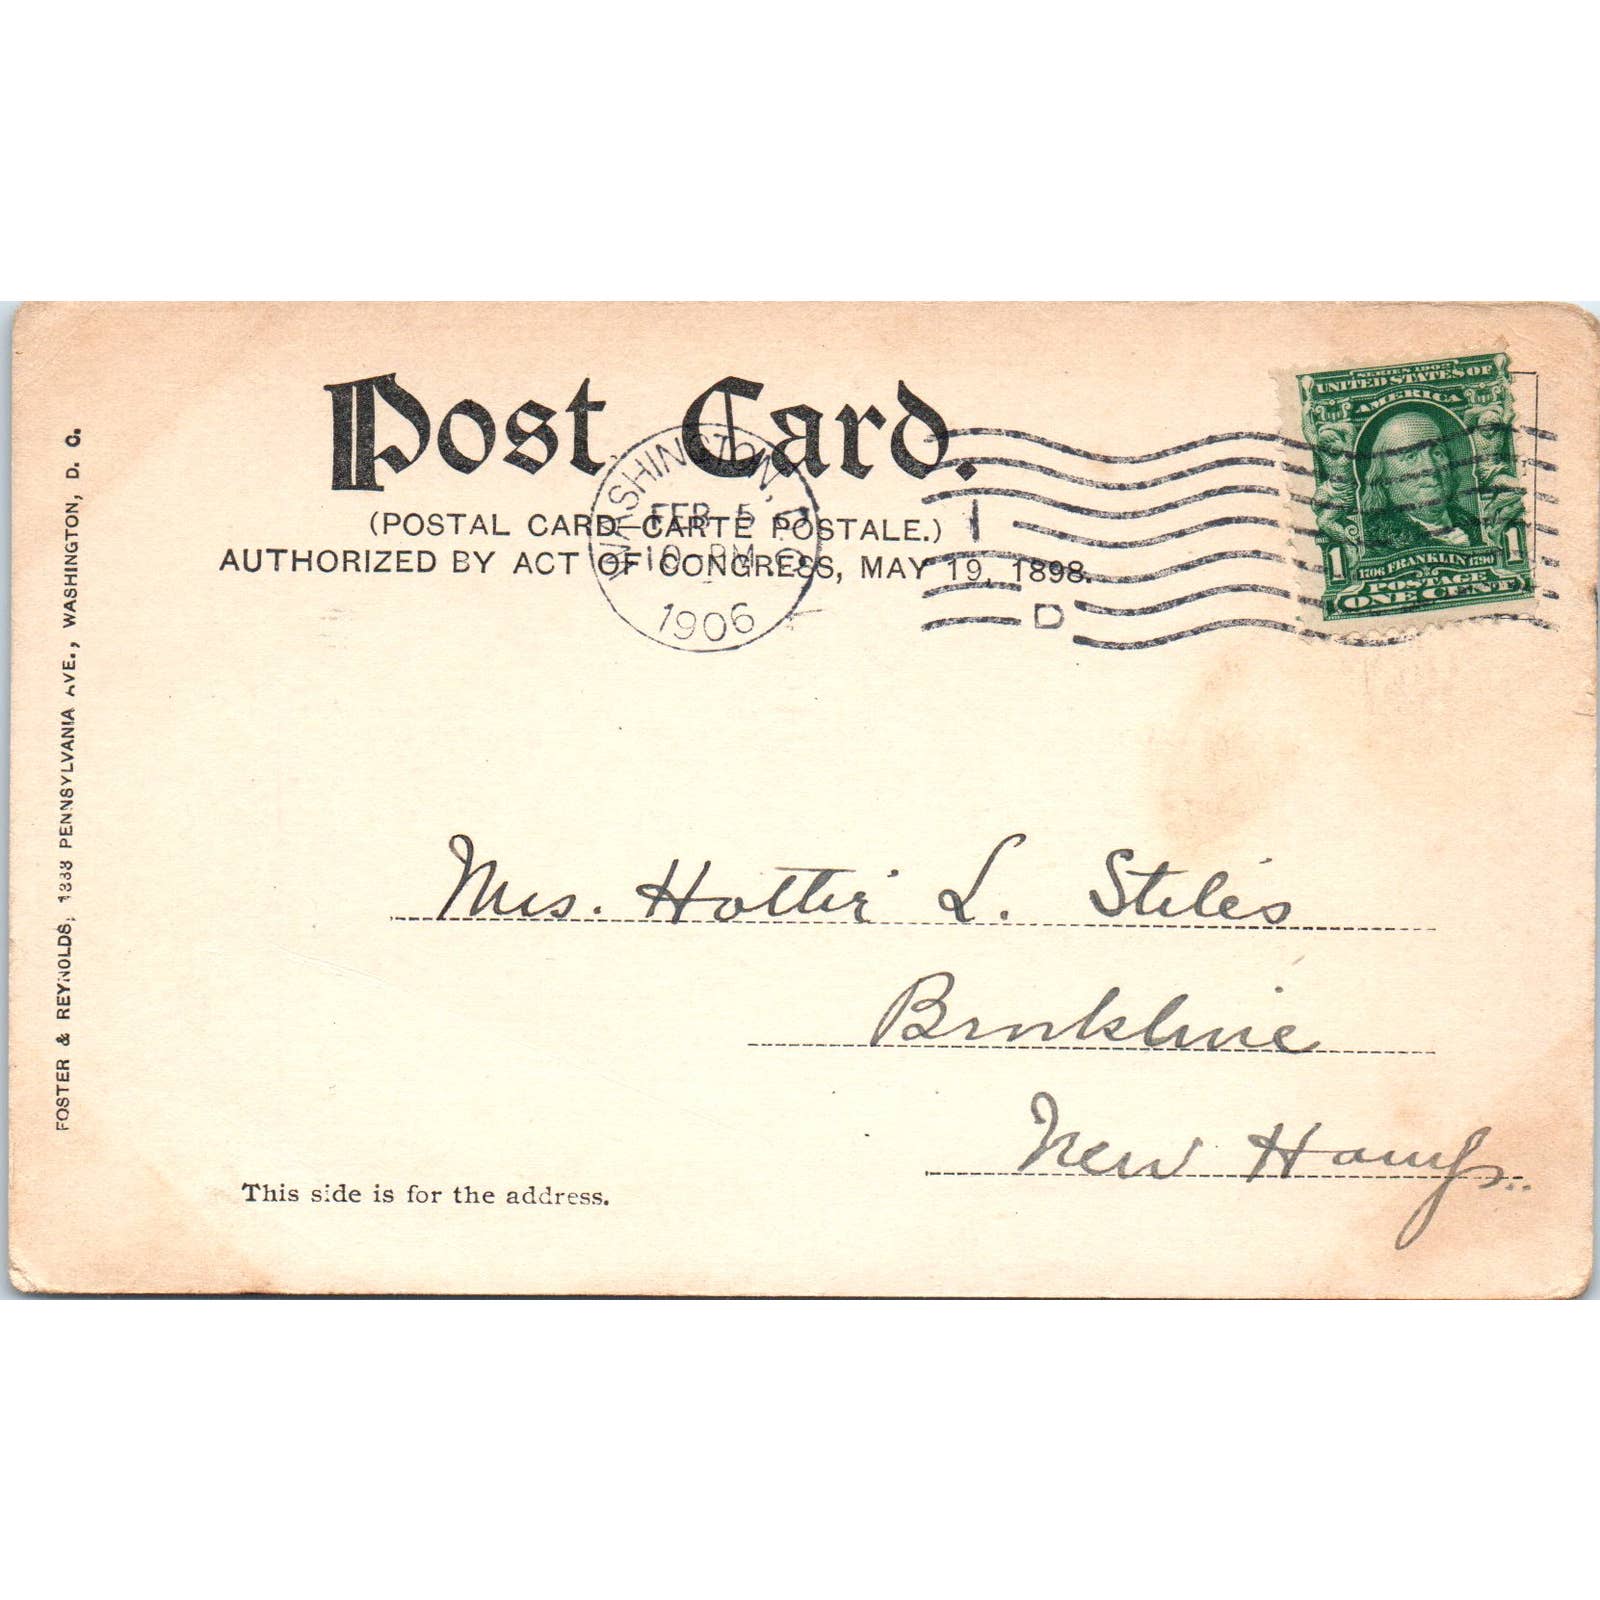 Post Card.
(POSTAL CARD—CARTE POSTALE.)
AUTHORIZED BY ACT OF CONGRESS, MAY 19, 1898.
WASHINGTON, D.C.
FEB 5
10 PM
1906
1
D
SERIES 1902
UNITED STATES OF
AMERICA
1706 FRANKLIN 1790
1 1
POSTAGE
ONE CENT
Mrs. Hattie L. Stiles
Brookline
New Hamps..
This side is for the address.
FOSTER & REYNOLDS, 1333 PENNSYLVANIA AVE., WASHINGTON, D. C.